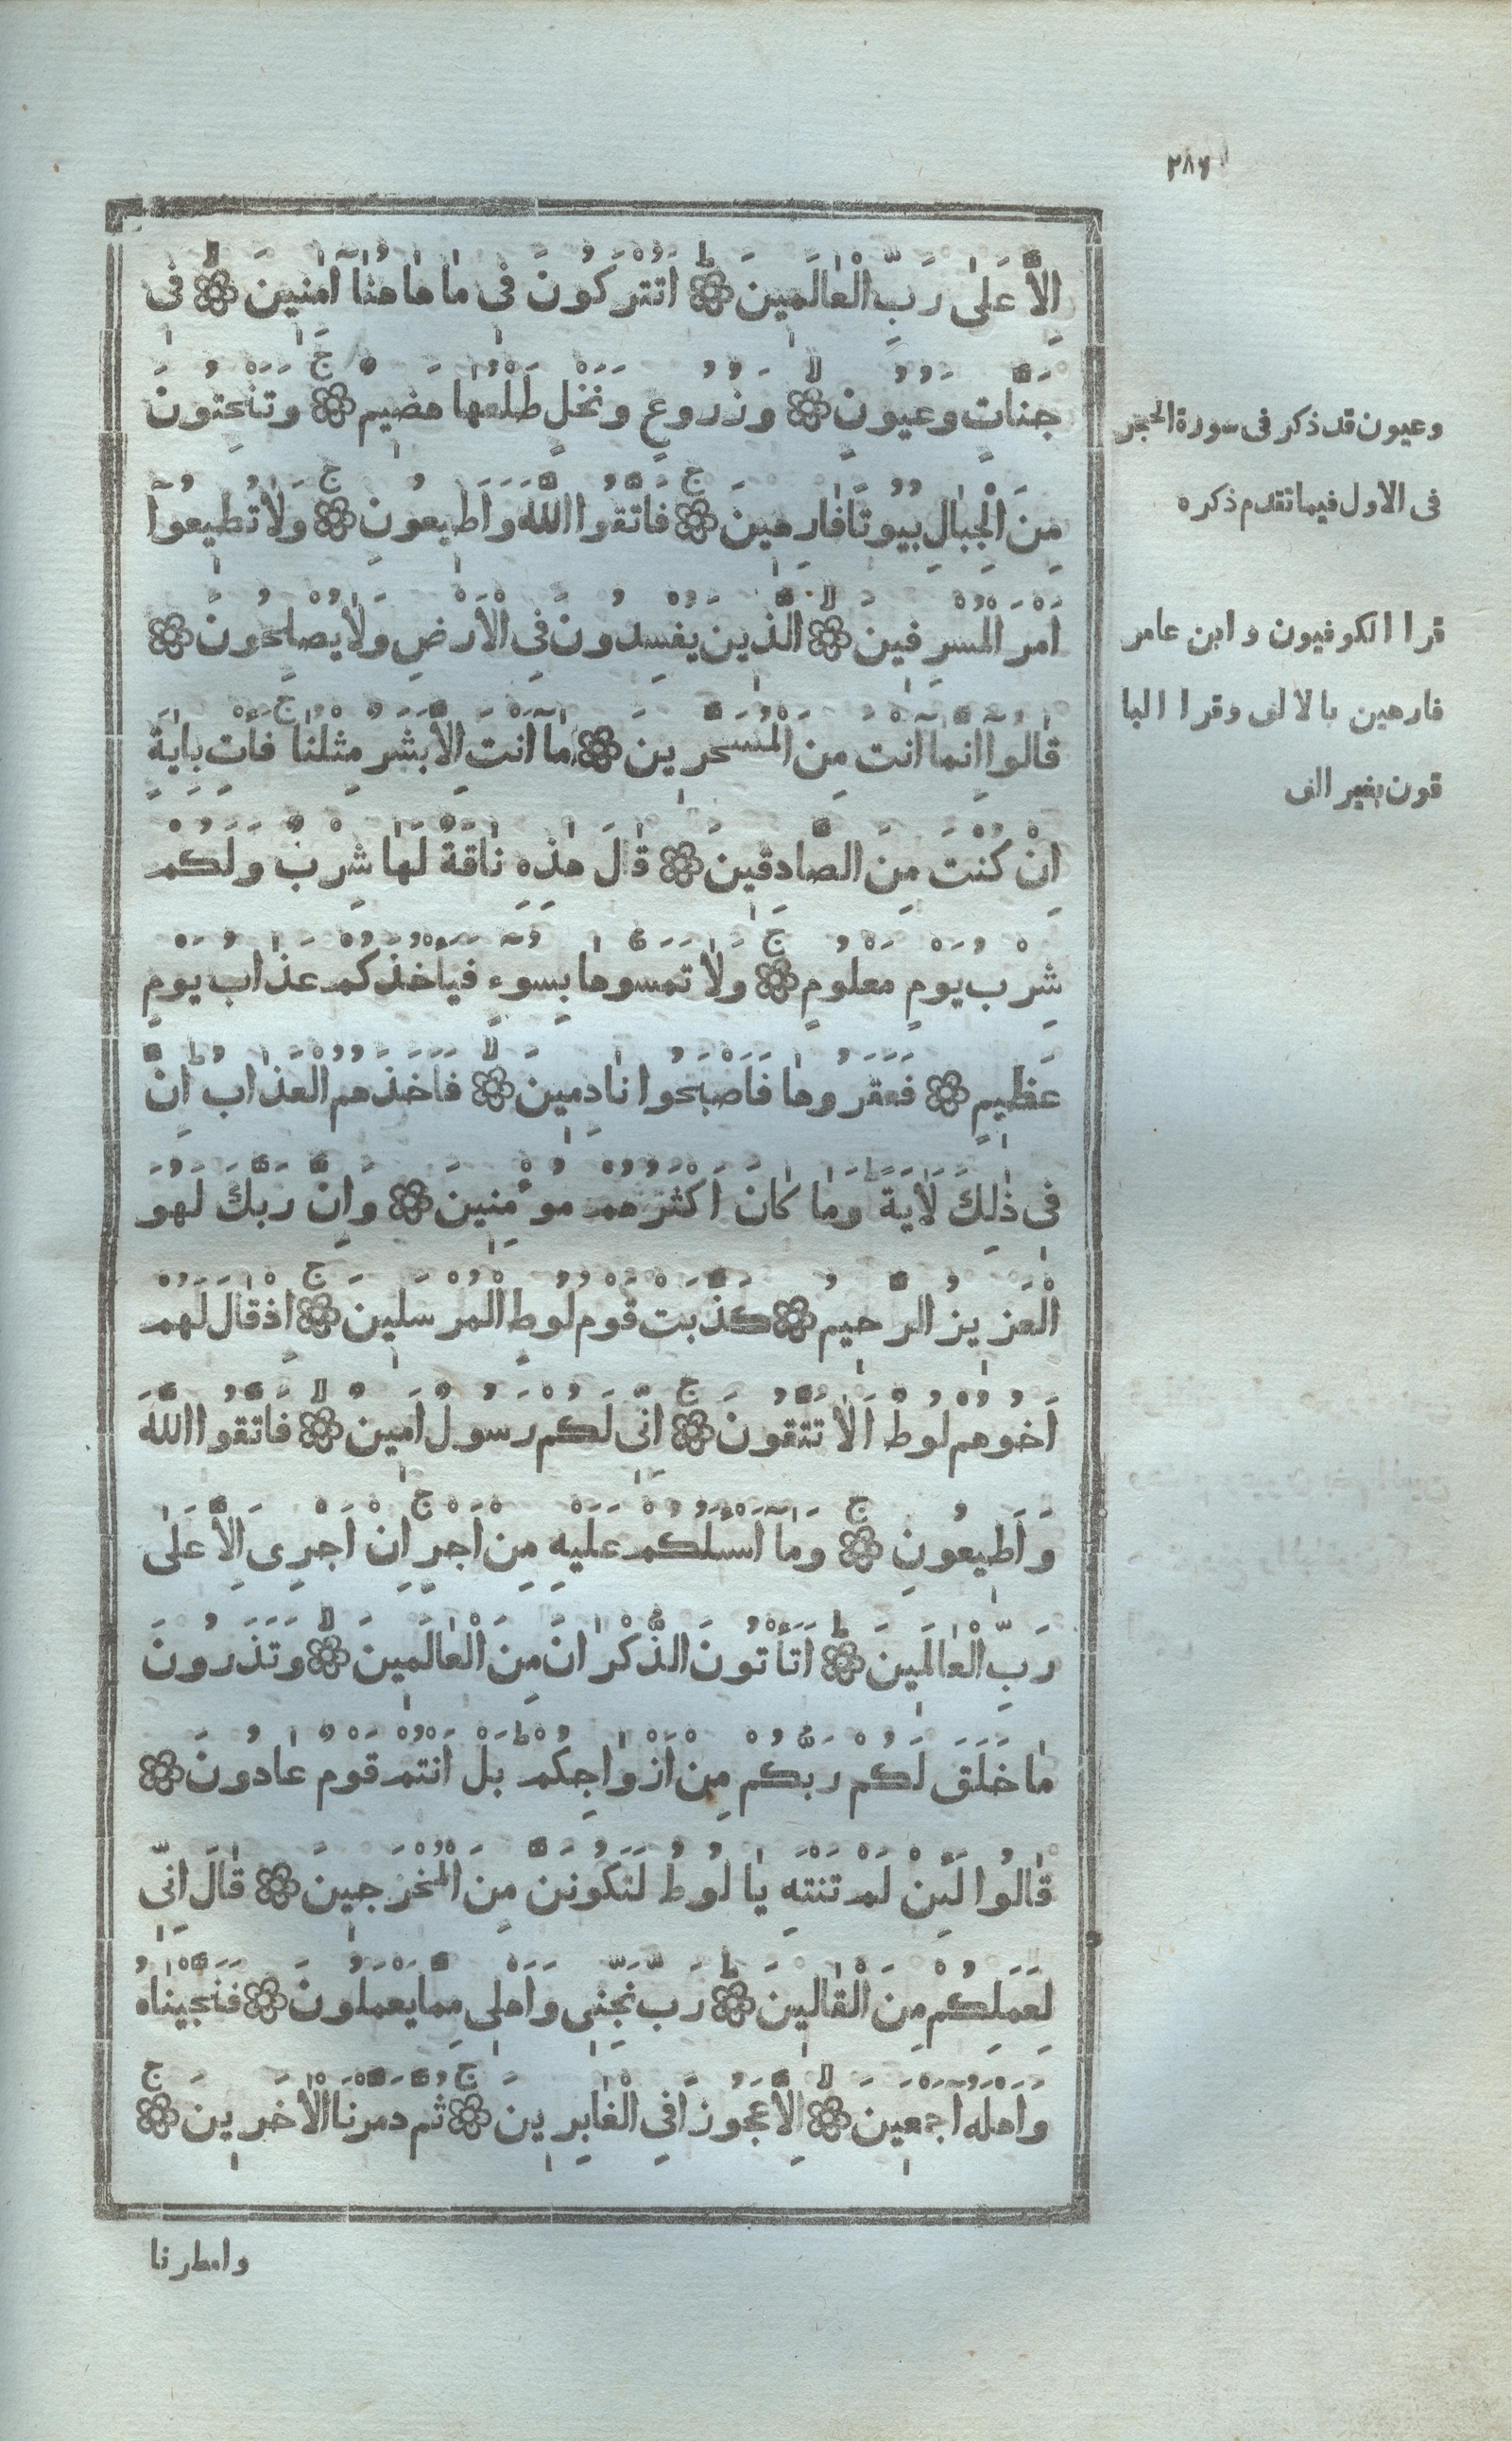 ٢٨٦
اِلاَّ عَلىٰ رَبِّ الْعٰالَمِينَ ۞ اَتُتْرَكُونَ فِى مٰا هٰا هُنٰا آمِنِينَ ۞ فِى
جَنّاتٍ وَعُيُونٍ ۞ وَزُرُوعٍ وَنَخْلٍ طَلْعُهٰا هَضِيمٌ ۞ وَتَنْحِتُونَ
مِنَ الْجِبٰالِ بُيُوتًا فٰارِهِينَ ۞ فَاتَّقُوا اللَّهَ وَاَطِيعُونِ ۞ وَلاٰ تُطِيعُوۤا
اَمْرَ الْمُسْرِفِينَ ۞ اَلَّذِينَ يُفْسِدُونَ فِى الْاَرْضِ وَلاٰ يُصْلِحُونَ ۞
قٰالُوۤا اِنَّمٰۤا اَنْتَ مِنَ الْمُسَحَّرِينَ ۞ مٰۤا اَنْتَ اِلاَّ بَشَرٌ مِثْلُنٰا فَاْتِ بِاٰيَةٍ
اِنْ كُنْتَ مِنَ الصَّادِقِينَ ۞ قٰالَ هٰذِهِ نٰاقَةٌ لَهٰا شِرْبٌ وَلَكُمْ
شِرْبُ يَوْمٍ مَعْلُومٍ ۞ وَلاٰ تَمَسُّوهٰا بِسُوۤءٍ فَيَاْخُذَكُمْ عَذٰابُ يَوْمٍ
عَظِيمٍ ۞ فَعَقَرُوهٰا فَاَصْبَحُوا نٰادِمِينَ ۞ فَاَخَذَهُمُ الْعَذٰابُ اِنَّ
فِى ذٰلِكَ لَاٰيَةً وَمٰا كٰانَ اَكْثَرُهُمْ مُؤْمِنِينَ ۞ وَاِنَّ رَبَّكَ لَهُوَ
الْعَزِيزُ الرَّحِيمُ ۞ كَذَّبَتْ قَوْمُ لُوطٍ الْمُرْسَلِينَ ۞ اِذْ قٰالَ لَهُمْ
اَخُوهُمْ لُوطٌ اَلاٰ تَتَّقُونَ ۞ اِنِّى لَكُمْ رَسُولٌ اَمِينٌ ۞ فَاتَّقُوا اللَّهَ
وَاَطِيعُونِ ۞ وَمٰۤا اَسْئَلُكُمْ عَلَيْهِ مِنْ اَجْرٍ اِنْ اَجْرِىَ اِلاَّ عَلىٰ
رَبِّ الْعٰالَمِينَ ۞ اَتَاْتُونَ الذُّكْرٰانَ مِنَ الْعٰالَمِينَ ۞ وَتَذَرُونَ
مٰا خَلَقَ لَكُمْ رَبُّكُمْ مِنْ اَزْوٰاجِكُمْ بَلْ اَنْتُمْ قَوْمٌ عٰادُونَ ۞
قٰالُوا لَئِنْ لَمْ تَنْتَهِ يٰا لُوطُ لَتَكُونَنَّ مِنَ الْمُخْرَجِينَ ۞ قٰالَ اِنِّى
لِعَمَلِكُمْ مِنَ الْقٰالِينَ ۞ رَبِّ نَجِّنِى وَاَهْلِى مِمَّا يَعْمَلُونَ ۞ فَنَجَّيْنٰاهُ
وَاَهْلَهُ اَجْمَعِينَ ۞ اِلاَّ عَجُوزًا فِى الْغٰابِرِينَ ۞ ثُمَّ دَمَّرْنَا الْاٰخَرِينَ ۞
وامطرنا
وعيون قد ذكر فى سورة الحجر
فى الاول فيما تقدم ذكره
قرا الكوفيون وابن عامر
فارهين بالالف وقرا البا
قون بغير الف